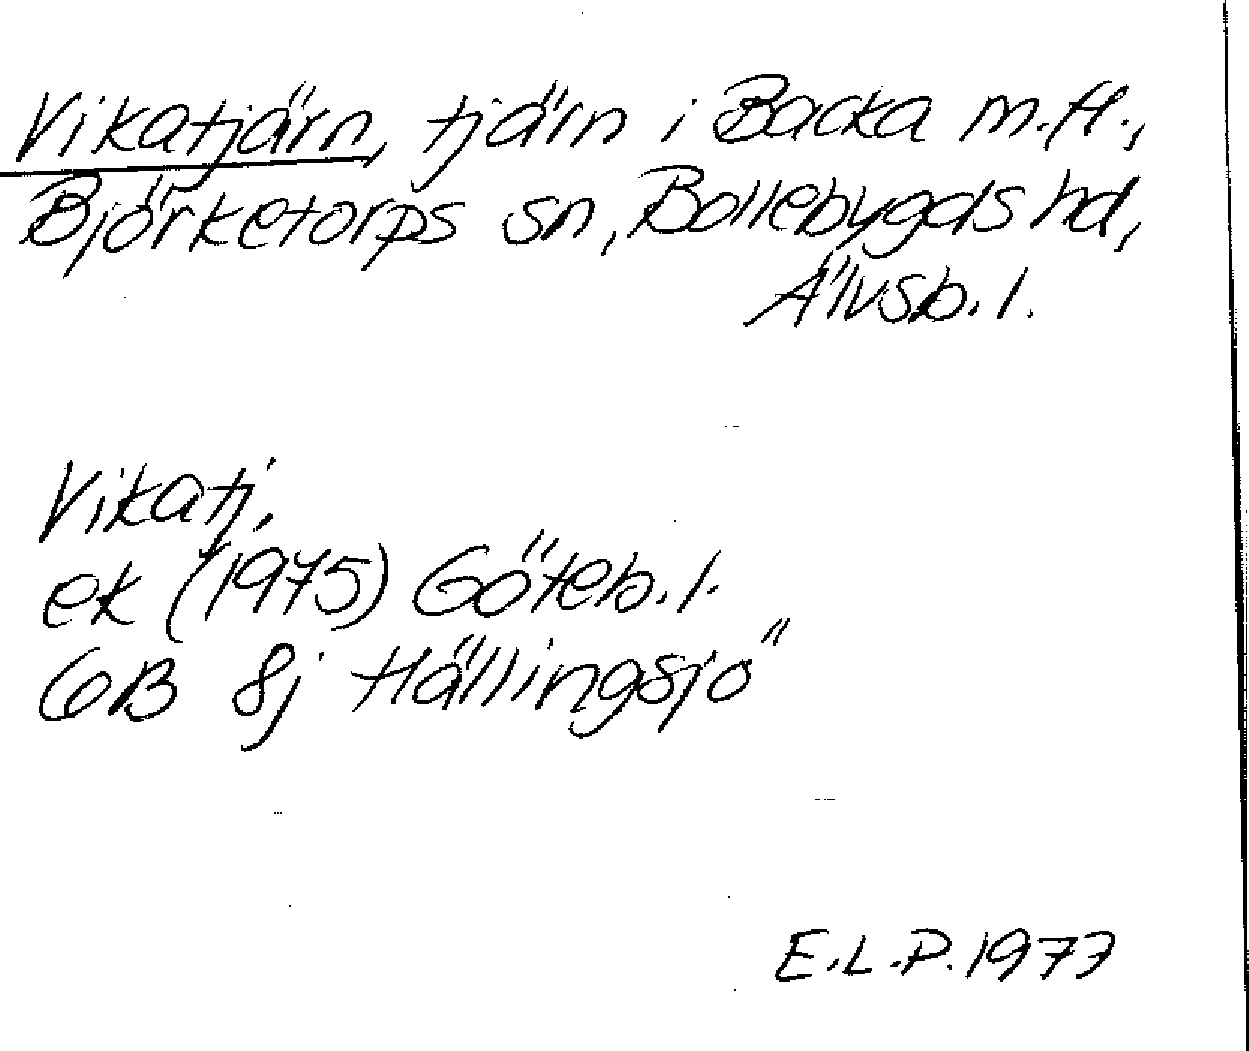 Vikatjärn, tjärn i Backa m.fl.,
Björketorps sn, Bollebygds hd,
Älvsb. l.
Vikatj,
ek (1975) Göteb. l.
6B 8j Hällingsjö
E.L.P. 1977